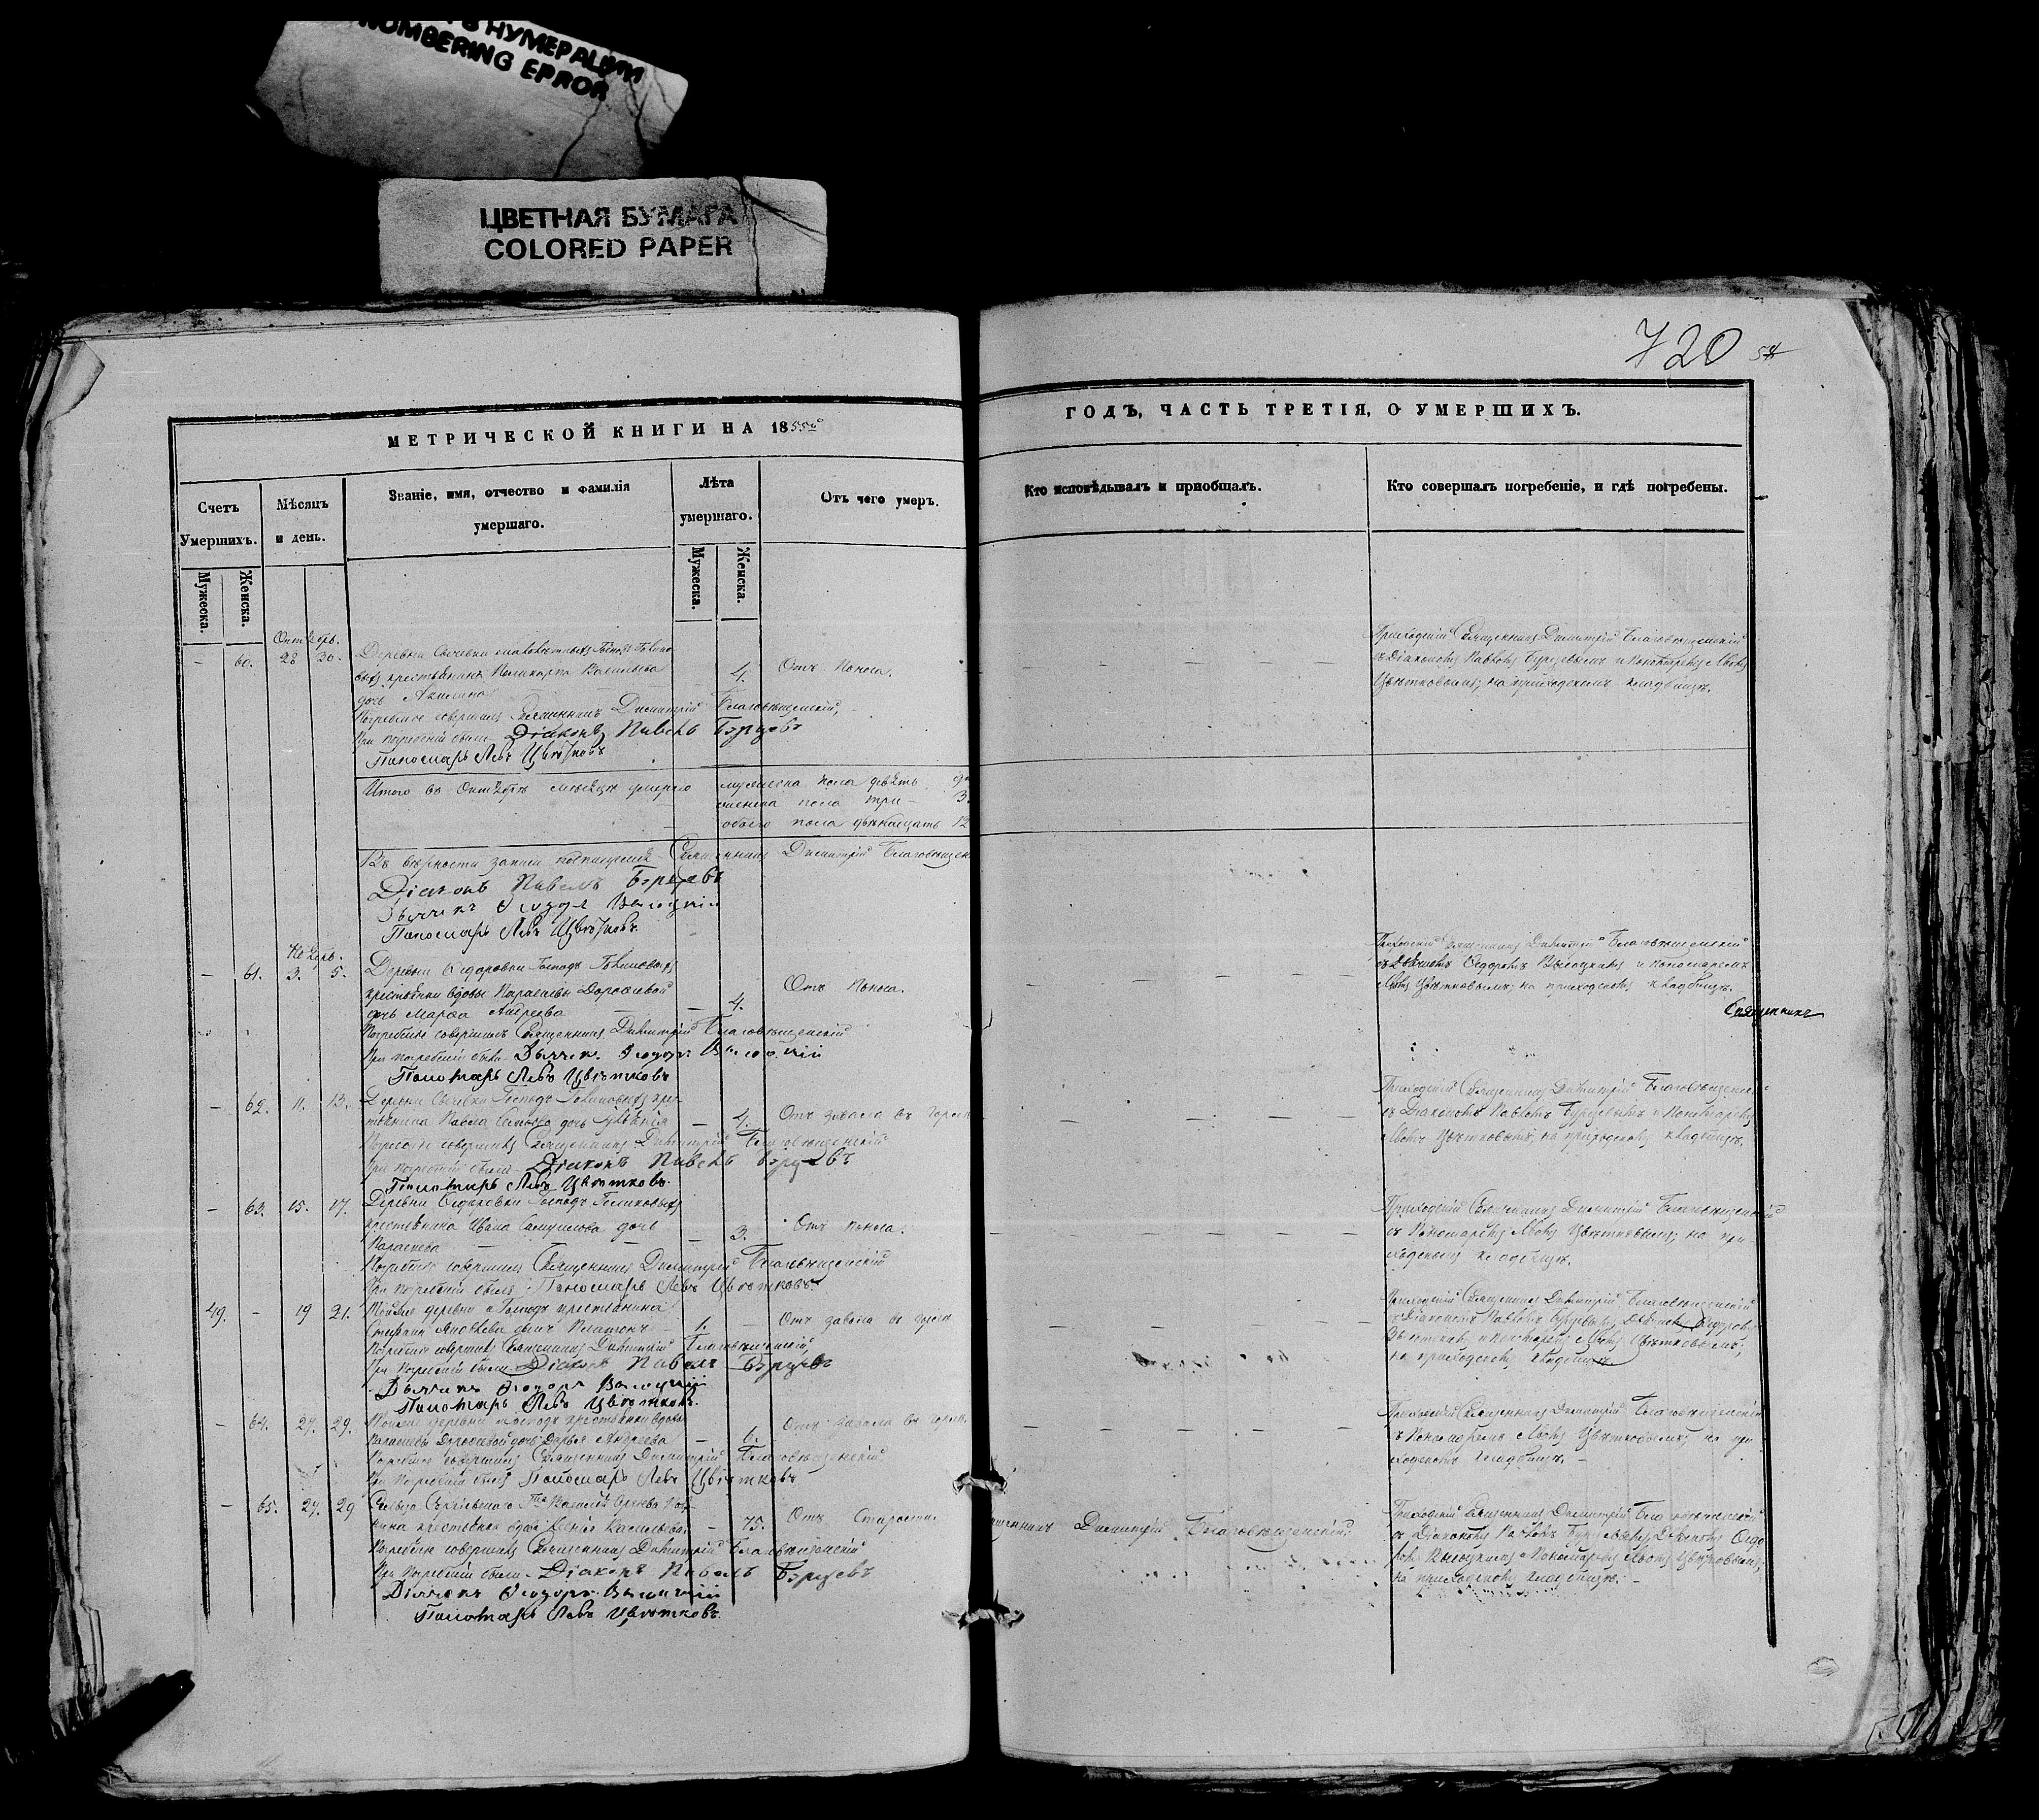 НУМЕРАЦИИ
NUMBERING ЕРROR
ЦВЕТНАЯ БУМАГА
COLORED PAPER
720
МЕТРИЧЕСКОЙ КНИГИ НА 1855го
ГОДЪ, ЧАСТЬ ТРЕТІЯ, О УМЕРШИХЪ.
Счетъ Умершихъ.
Мѣсяцъ и день.
Званіе, имя, отчество и фамилія
умершаго.
Лѣта
умершаго.
Отъ чего умеръ.
Кто исповѣдывалъ и пріобщалъ.
Кто совершалъ погребеніе, и гдѣ погребены.
Мужеска.
Женска.
Мужеска.
Женска.
Октября.
– 60. 28 30. Деревни
крестьянина Поликарпа Васильева – 4. Отъ поноса.
дочь Акилина
Погребеніе совершалъ Священникъ Димитрій Благовѣщенскій,
При погребеніи были Діаконъ Павелъ Бурцевъ
Пономарь Левъ Цвѣтковъ
Приходскій Священникъ Димитрій Благовѣщенскій
съ Діакономъ Павломъ Бурцевымъ и Пономаремъ Львомъ
Цвѣтковымъ; на приходскомъ кладбищѣ.
Итого въ Октябрѣ мѣсяцѣ умерло мужеска пола девять 9
женска пола три – 3.
обоего пола двѣнадцать 12
Къ вѣрности записи подписуемся Священникъ Димитрій Благовѣщен
Діаконъ Павелъ Бурцевъ
Дьячекъ Ѳеодоръ
Пономарь Левъ Цвѣтковъ.
Ноябрь.
– 61. 3. 5. Деревни Ѳедоровки Господъ
крестьянки вдовы Параскевы Дороѳеевой Отъ поноса.
дочь Марѳа Андреева – 4.
Погребеніе совершалъ Священникъ Димитрій Благовѣщенскій
При погребеніи были Дьячекъ Ѳеодоръ
Пономарь Левъ Цвѣтковъ
Приходскій Священникъ Димитрій Благовѣщенскій
съ Дьячкомъ Ѳедоромъ и Пономаремъ
Львомъ Цвѣтковымъ; на приходскомъ кладбищѣ.
Священникъ
– 62. 11. 13. Деревни Господъ
крестьянина Павла дочь – 4. Отъ завала въ горлѣ
Погребеніе совершалъ Священникъ Димитрій Благовѣщенскій
При погребеніи были Діаконъ Павелъ Бурцевъ
Пономарь Левъ Цвѣтковъ.
Приходскій Священникъ Димитрій Благовѣщенскій
съ Діакономъ Павломъ Бурцевымъ и Пономаремъ
Львомъ Цвѣтковымъ, на приходскомъ кладбищѣ.
– 63. 15. 17. Деревни Ѳедоровки Господъ
крестьянина Ивана Самуилова дочь – 3. Отъ поноса.
Параскева
Погребеніе совершалъ Священникъ Димитрій Благовѣщенскій
При погребеніи былъ Пономарь Левъ Цвѣтковъ.
Приходскій Священникъ Димитрій Благовѣщенскій
съ Пономаремъ Львомъ Цвѣтковымъ; на при
ходскомъ кладбищѣ.
49. – 19 21. Тойже деревни и Господъ крестьянина
Стефана Яковлева сынъ Платонъ 1. – Отъ завала въ горлѣ
Погребеніе совершалъ Священникъ Димитрій Благовѣщенскій,
При погребеніи были Діаконъ Павелъ Бурцевъ
Дьячекъ Ѳеодоръ
Пономарь Левъ Цвѣтковъ.
Приходскій Священникъ Димитрій Благовѣщенскій
съ Діакономъ Павломъ Бурцевымъ, Дьячкомъ Ѳедоромъ
и Пономаремъ Львомъ Цвѣтковымъ;
на приходскомъ кладбищѣ.
– 64. 27. 29. Тойже деревни и Господъ крестьянки вдовы
Параскевы Дороѳеевой дочь Дарья Андреева – 6. Отъ завала въ горлѣ.
Погребеніе совершалъ Священникъ Димитрій Благовѣщенскій
При погребеніи былъ Пономарь Левъ Цвѣтковъ
Приходскій Священникъ Димитрій Благовѣщенскій
съ Пономаремъ Львомъ Цвѣтковымъ; на при
ходскомъ кладбищѣ.
– 65. 27. 29 Сельца
крестьянка вдова Васильева – 75. Отъ Старости.
Священникъ Димитрій Благовѣщенскій.
Погребеніе совершалъ Священникъ Димитрій Благовѣщенскій
При погребеніи были Діаконъ Павелъ Бурцевъ
Дьячекъ Ѳеодоръ
Пономарь Левъ Цвѣтковъ.
Приходскій Священникъ Димитрій Благовѣщенскій
съ Діакономъ Павломъ Бурцевымъ, Дьячкомъ Ѳедо
ромъ и Пономаремъ Львомъ Цвѣтковымъ;
на приходскомъ кладбищѣ.